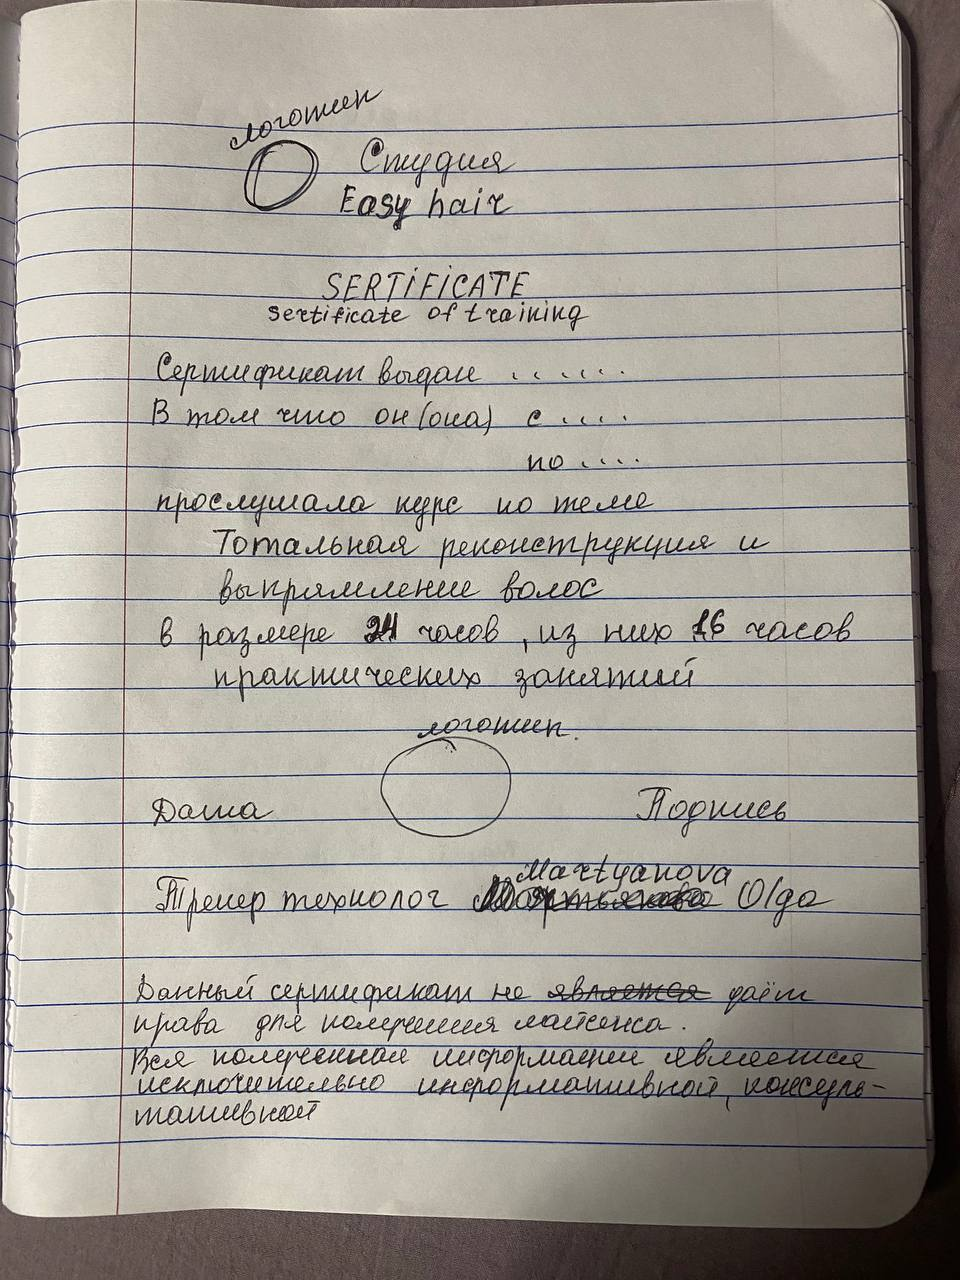 логотип
Студия
Easy hair
SERTIFICATE
sertificate of training
Сертификат выдан ......
В том что он(она) с ....
по ....
прослушала курс по теме
Тотальная реконструкция и
выкрямление волос
в размере 24 часов, из них 16 часов
практических занятий
логотип.
Дата
Подпись
Martyanova
Тренер технолог Olga
Данный сертификат не является даёт
права для получения лайсенса.
Вся полученная информация является
исключительно информативной, консуль-
тативной